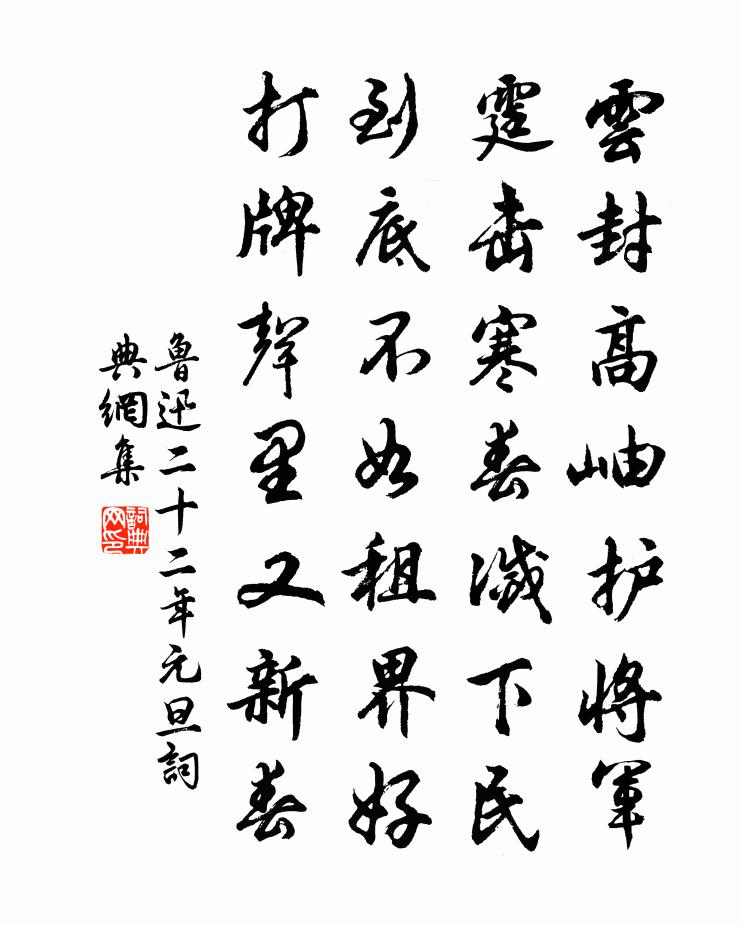 雲封高岫护將軍
霆击寒春滅下民
到底不如租界好
打牌聲里又新春
魯迅二十二年元旦詞
典網集
詞典网印